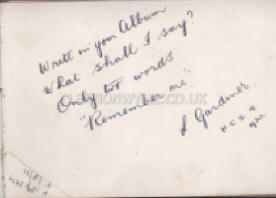 Write in your Album
What shall I say?
Only two words
"Remember me"
S Gardiner